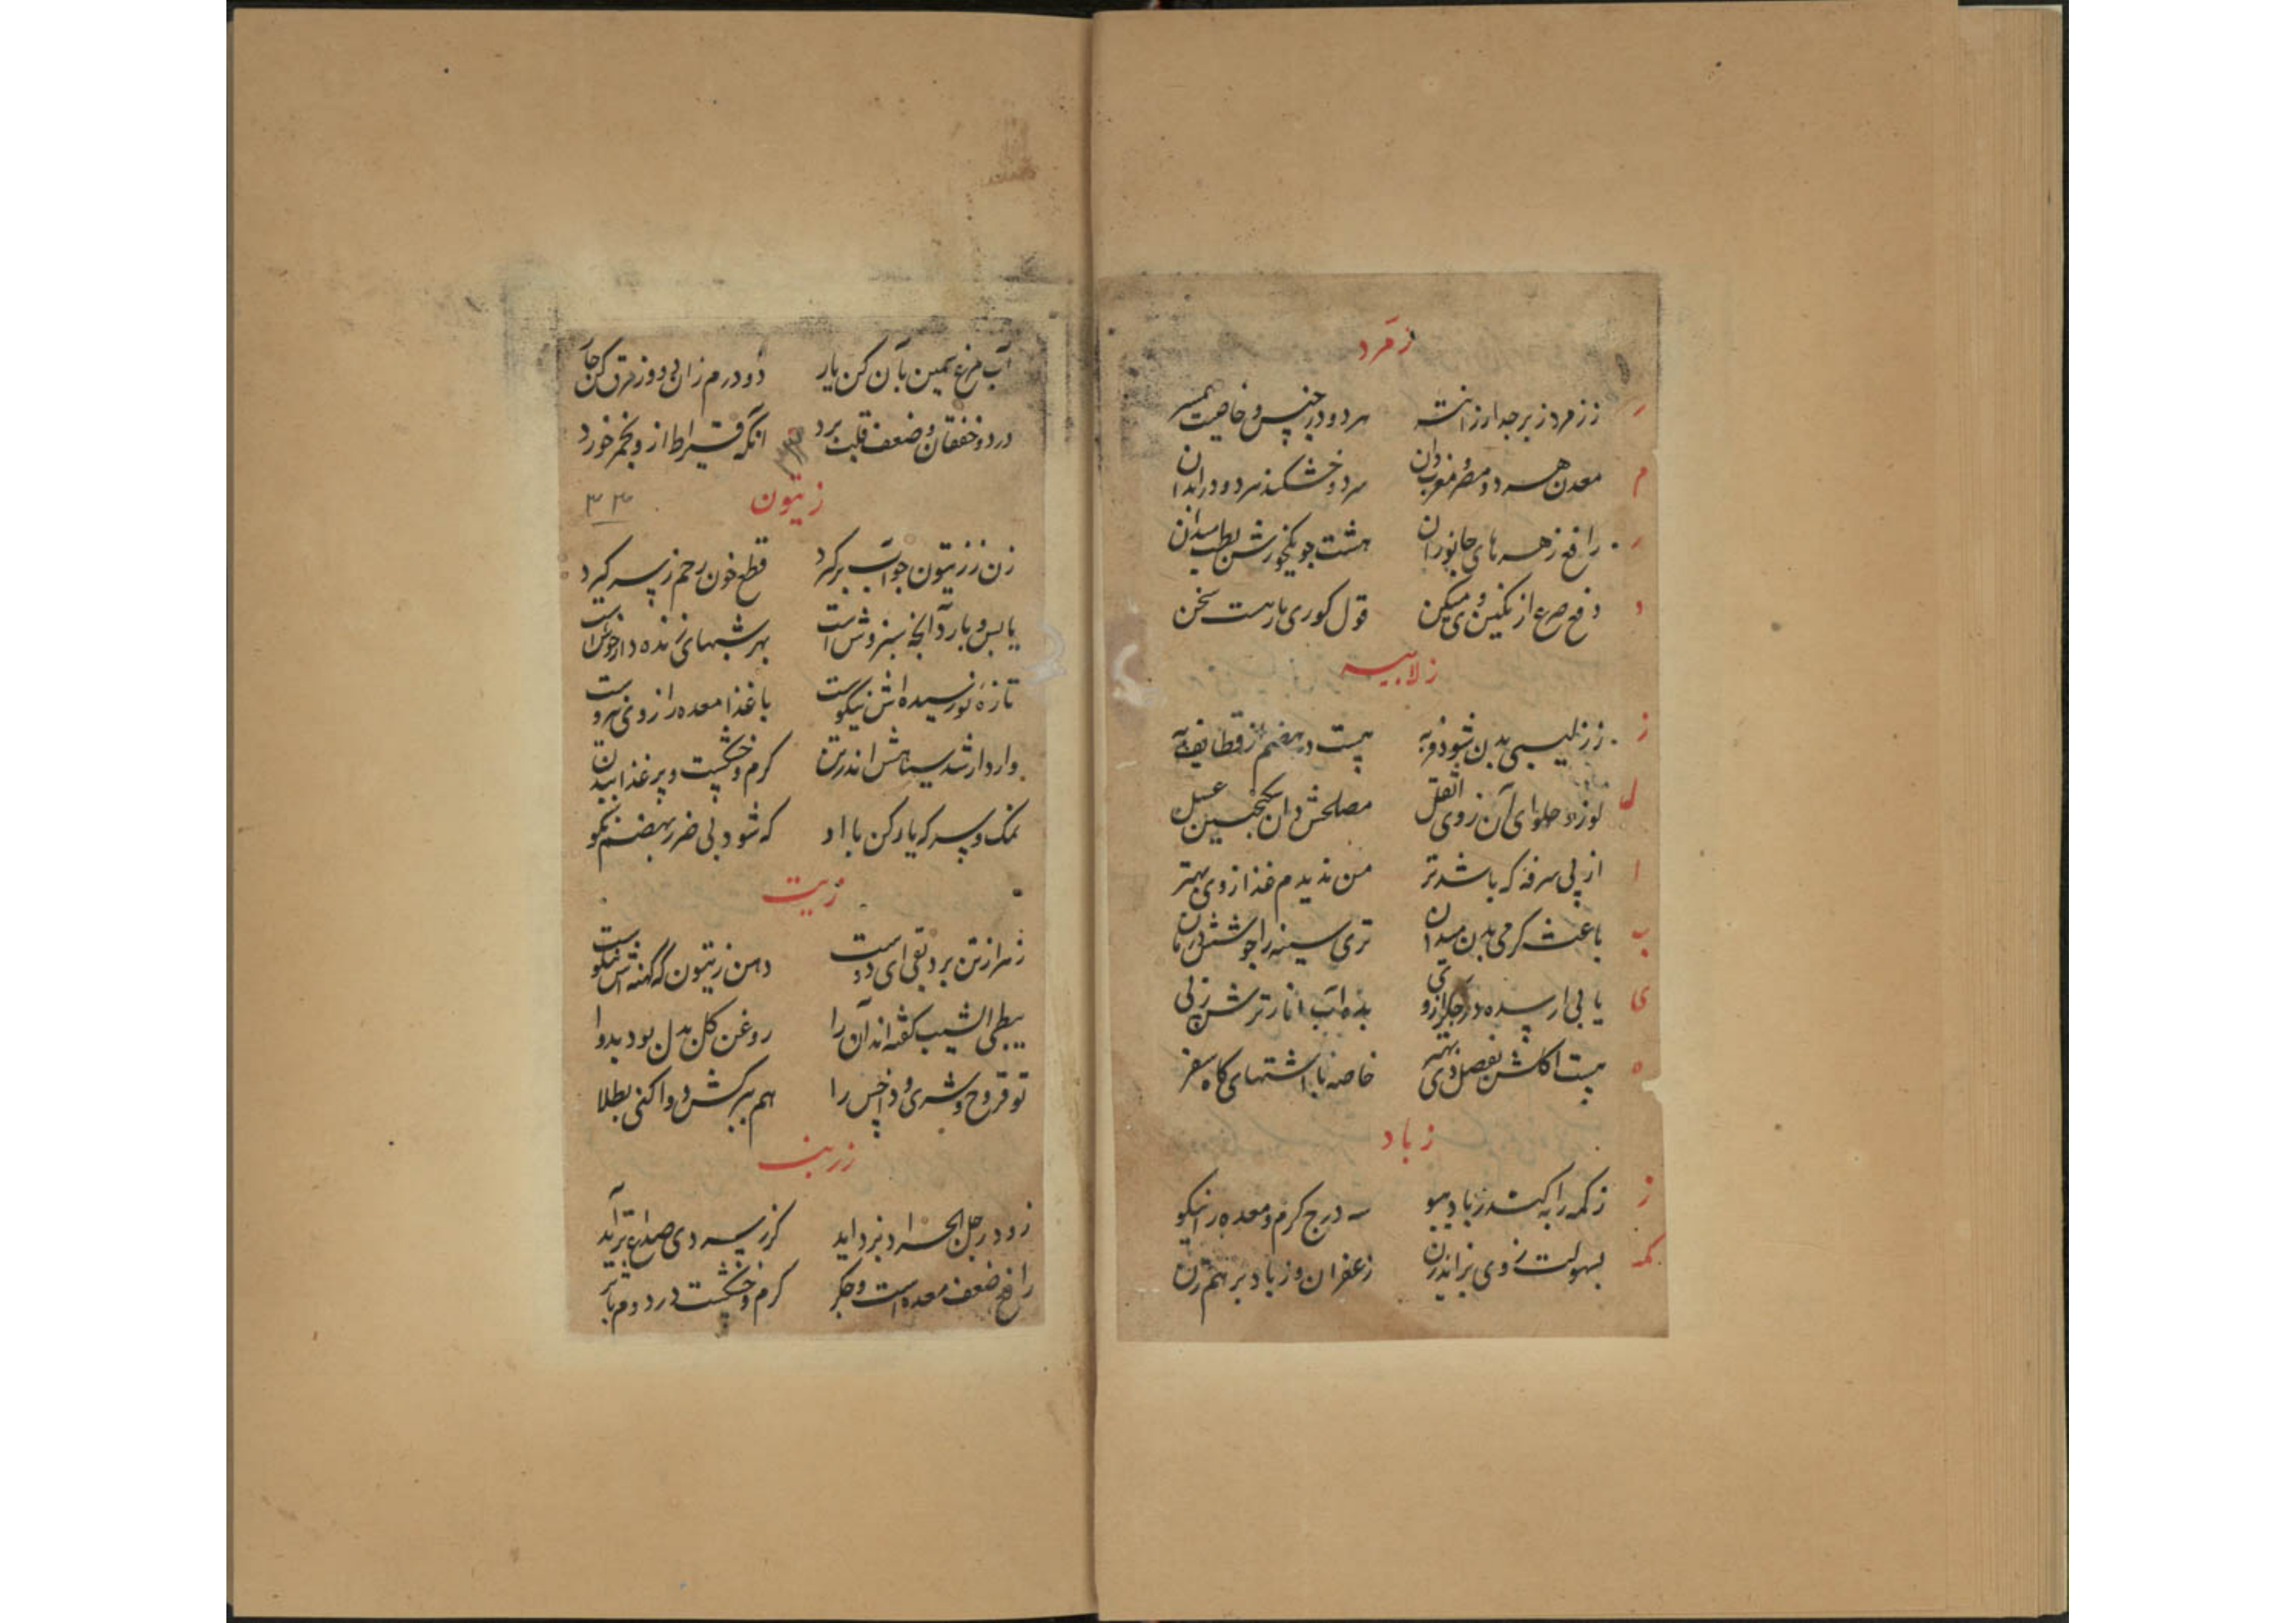 زمرد
ز زمرد زبرجد ارزانست هر دو در جنس و خاصیت همسر
ر
معدن هر دو مصر و مغرب دان سرد و خشکند هر دو در ابدان
م
رافع زهرهای جانوران هشت جو بخورش بطب میدان
ر
دفع صرع از نگین وی میکن قول کوری مار هست سخن
د
زلابیه
ز زلیبی بدن شود فربه هست در هضم از قطایف به
ز
لوز و حلوای آن ز وی اثقل مصلحش دان سکنجبین عسل
ل
از پی سرفه که باشد تر من ندیدم غذا از وی بهتر
ا
باعث گرمی بدن میدان تری سینه را چو شش درمان
ب
یابی ار سده در جگر از وی بده آب انار ترش ز پی
ی
هست اکلش بفصل دی بهتر خاصه با اشتهای گاه سفر
ه
زباد
زکمه را به کند زباد ببو سه درج گرم و معده را نیکو
ز
بسهولت ز وی بزاید زن زعفران و زباد بر هم زن
کمه
آب مرغ سمین بآن کن یار دو درم زان بی دو ز مرق کن چار
درد و خفقان و ضعف قلبت برد انکه قیراط از و بخمر خورد
زیتون
۳۳
زن ز زیتون چو آب برگیرد قطع خون رحم ز سر گیرد
یابس و بارد آنچه سبز وش است بهر شبهای زنده دار خوش است
تازه نورسیده اش نیکوست با غذا معده را ز وی نیروست
وارد ار شد سیاهش اندر تن گرم و خشکست و پر غذا ببدن
نمک و سرکه یار کن با او که شود بی ضرر بهضم نکو
زیت
زهر از تن برد بقی ای دوست دهن زیتون که کهنه اش نیکوست
ببطی الشیب گفته اند آن را روغن گل بدل بود بدوا
تو قروح و شری و داخس را هم ببرکش دوا کنی بطلا
زرنب
زود رجل الجراد بزداید گر ز سردی صداع بر آید
رافع ضعف معده است و جگر گرم و خشکست در دوم بنگر